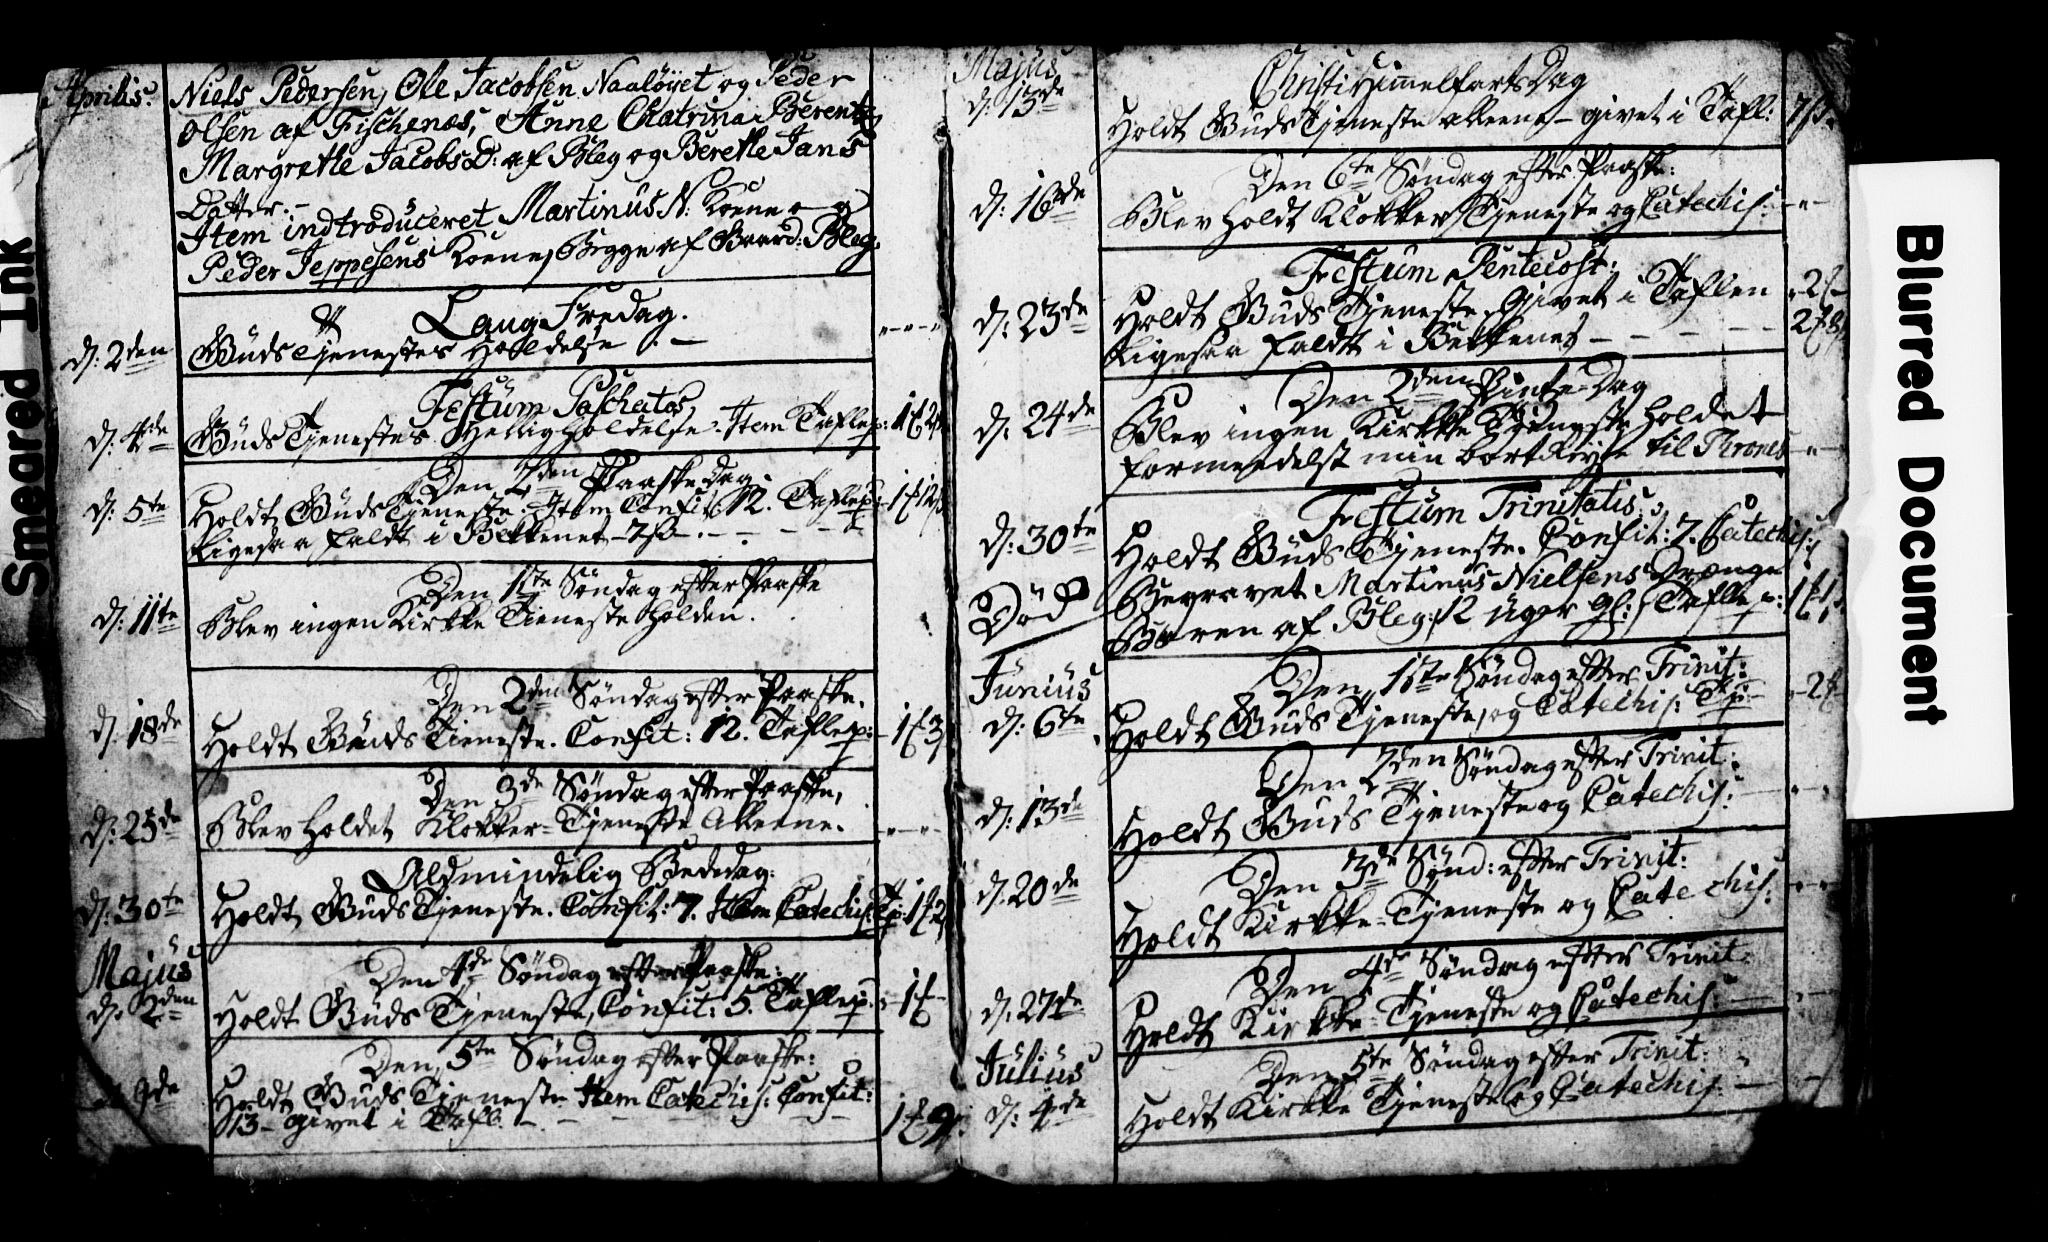 Aprilis.
Niels Pedersen, Ole Jacobsen Naaløÿet og Peder
Olsen af Fischenæs, Anne Chatrina Berentz
Margrethe Jacobs D: af Bleg og Berethe Jans
Datter.-
Item indtroduceret Martinus N: Kone og
Peder Jeppesens Kone, Begge af Gaard: Bleg.
Lang Fredag.
d: 2den Guds Tjenestes Holdelse . -
Festum Paschatos
d: 4de Guds Tjenestes Hellig holdelse. Item Taflep:
Den 2den Paaske Dag
d: 5te Holdt Guds Tjeneste. Item Confit: 12. Taflep:
Ligesaa faldt i Bekkenet
Den 1ste Søndag efter Paaske
d: 11te Blev ingen Kirkke Tieneste Holden.
Den 2den Søndag efter Paaske.
d: 18de Holdt Guds Tieneste. Confit: 12. Taflep:
Den 3de Søndag efter Paaske,
d: 25de Blev Holdet Klokker-Tjeneste Alleene.
Aldmindelig Bededag.
d: 30te Holdt Guds Tjeneste. Confit: 7. Item Catechis:
Majus
Den 4de Søndag efter Paaske:
d. 2den Holdt Guds Tjeneste, Confit: 5. Taflep:
Den 5te Søndag efter Paaske:
9de Holdt Guds Tjeneste Item Catechis: Confit:
13 - givet i Tafl.
Majus
Christi Himmelfarts Dag
d: 13de Holdt Guds Tjeneste alleene - givet i Tafl:
Den 6te Søndag efter Paaske:
d: 16de Blev Holdt Klokker Tjeneste og Catechis:
Festum Pentecost:
d: 23de Holdt Guds Tjeneste, Givet i Taflen
Ligesaa faldt i Bekkenet -
Den 2den Pintse-Dag
d: 24de Blev ingen Kirkke Tjeneste Holdet
formeedelst min bort Reyse til Thronds
Festum Trinitatis
d: 30te Holdt Guds Tjeneste. Confit: 7. Catechis:
Død Begravet Martinus Nielsens Drænge
Baren af Bleg: 12 uger gl: Taflep:
Junius
Den 1ste Søndag efter Trinit:
d: 6te Holdt Guds Tjeneste, og Catechis:
Den 2den Søndag efter Trinit:
d: 13de Holdt Guds Tjeneste og Catechis:
Den 3de Sønd: efter Trinit:
d. 20de Holdt Kirkke-Tjeneste og Catechis:
Den 4de Søndag efter Trinit:
d: 27de Holdt Kirkke Tjeneste og Catechis:
Julius
Den 5te Søndag efter Trinit:
d: 4de Holdt Kirkke Tjeneste og Catechis:
Smeared Ink
Blurred Document